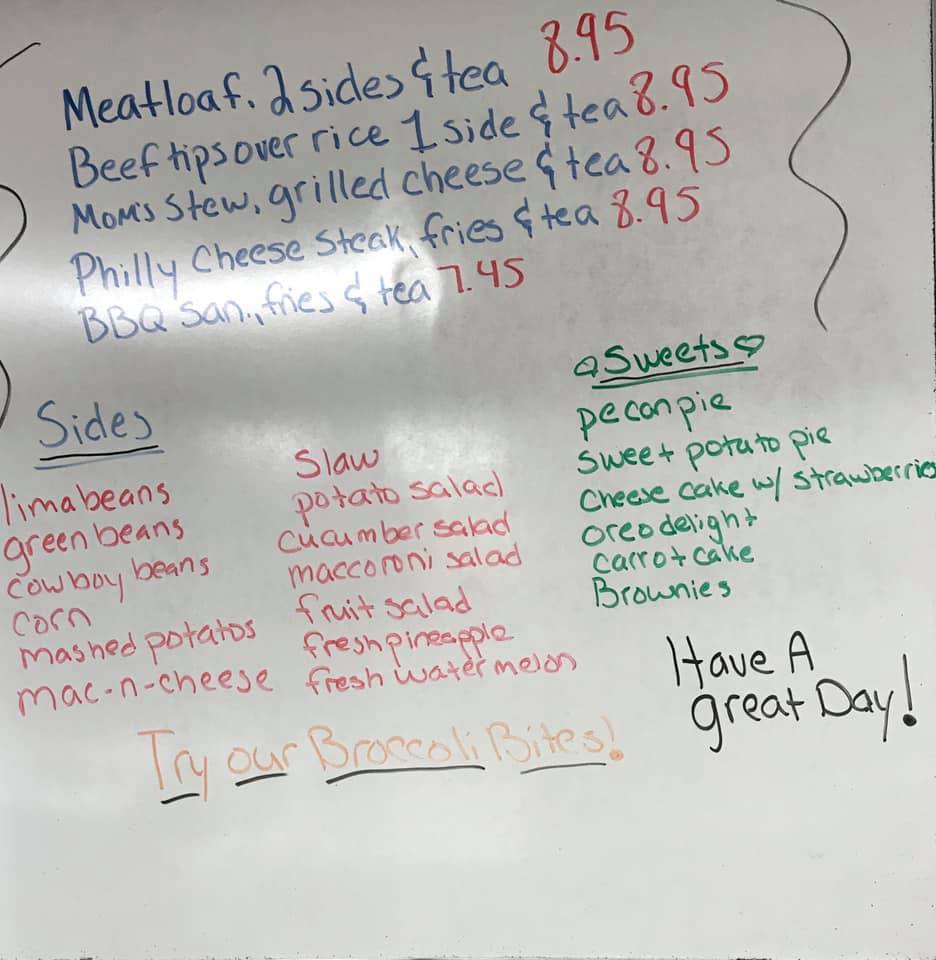 Meatloaf. 2 sides & tea 8.95
Beef tips over rice 1 side & tea 8.95
Mom's Stew, grilled cheese & tea 8.95
Philly Cheese Steak, fries & tea 8.95
BBQ San., fries & tea 7.45
Sides
lima beans
green beans
cowboy beans
corn
mashed potatos
mac-n-cheese
Slaw
potato salad
cucumber salad
maccoroni salad
fruit salad
fresh pineapple
fresh water melon
Sweets
pecon pie
sweet potato pie
cheese cake w/ strawberries
oreo delight
carrot cake
Brownies
Have A
great Day!
Try our Broccoli Bites!